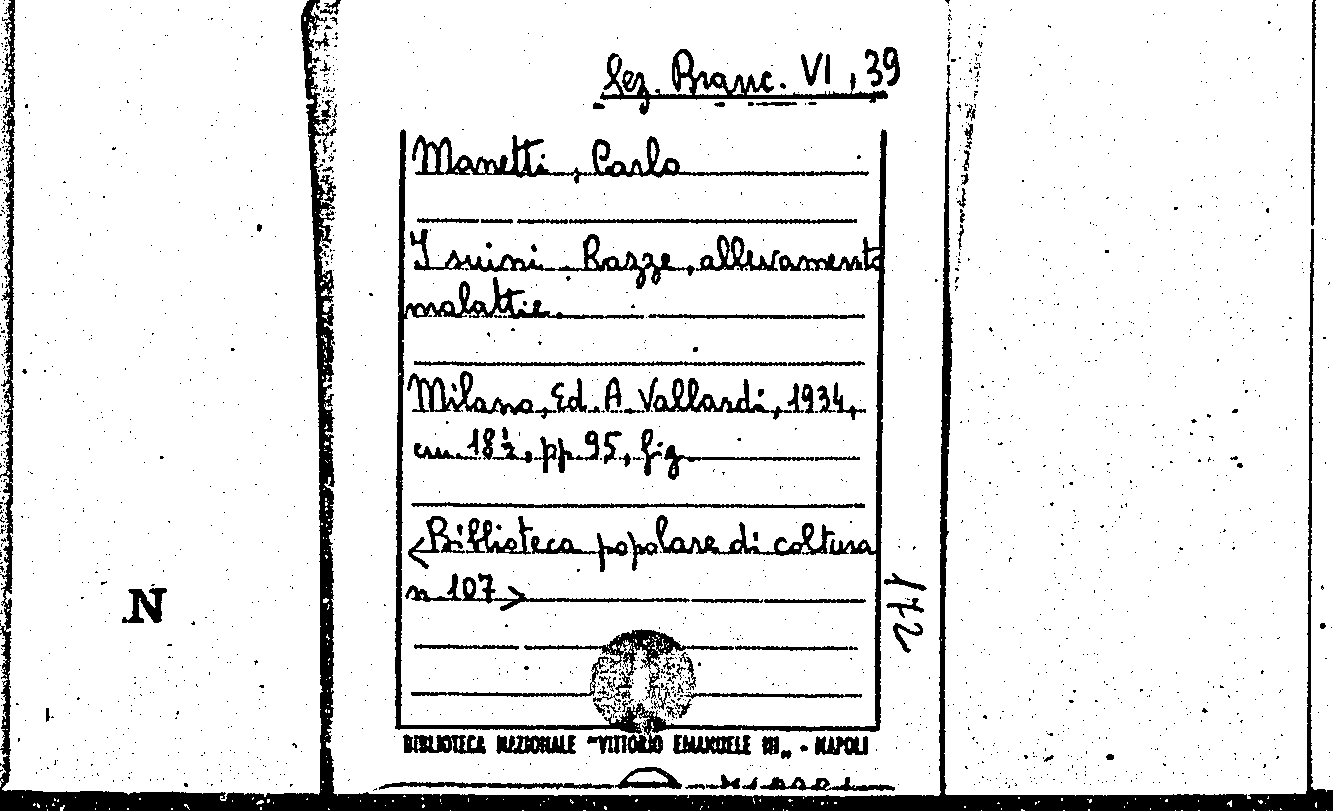 Sez. Branc. VI, 39
Manetti, Carlo
I suini. Razze, allevamento
malattie.
Milano, Ed. A. Vallardi, 1934,
cm. 18½, pp. 95, fig.
<Biblioteca popolare di coltura
n. 107>
N
BIBLIOTECA NAZIONALE "VITTORIO EMANUELE III„ - NAPOLI